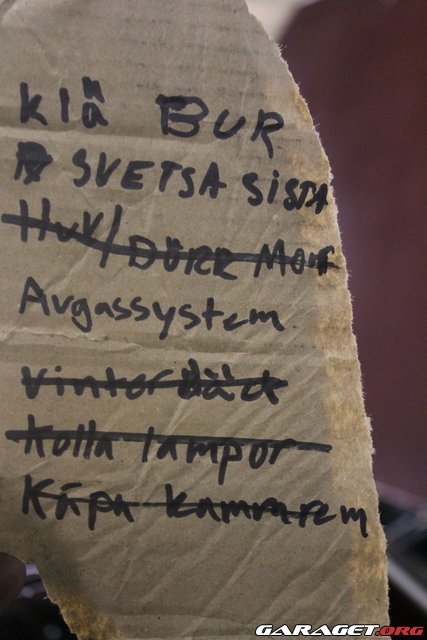 Klä BUR
SVETSA SISTA
HUV/DÖRR MONT
Avgassystem
Vinterdäck
Kolla lampor
Köpa kamrem
GARAGET.ORG